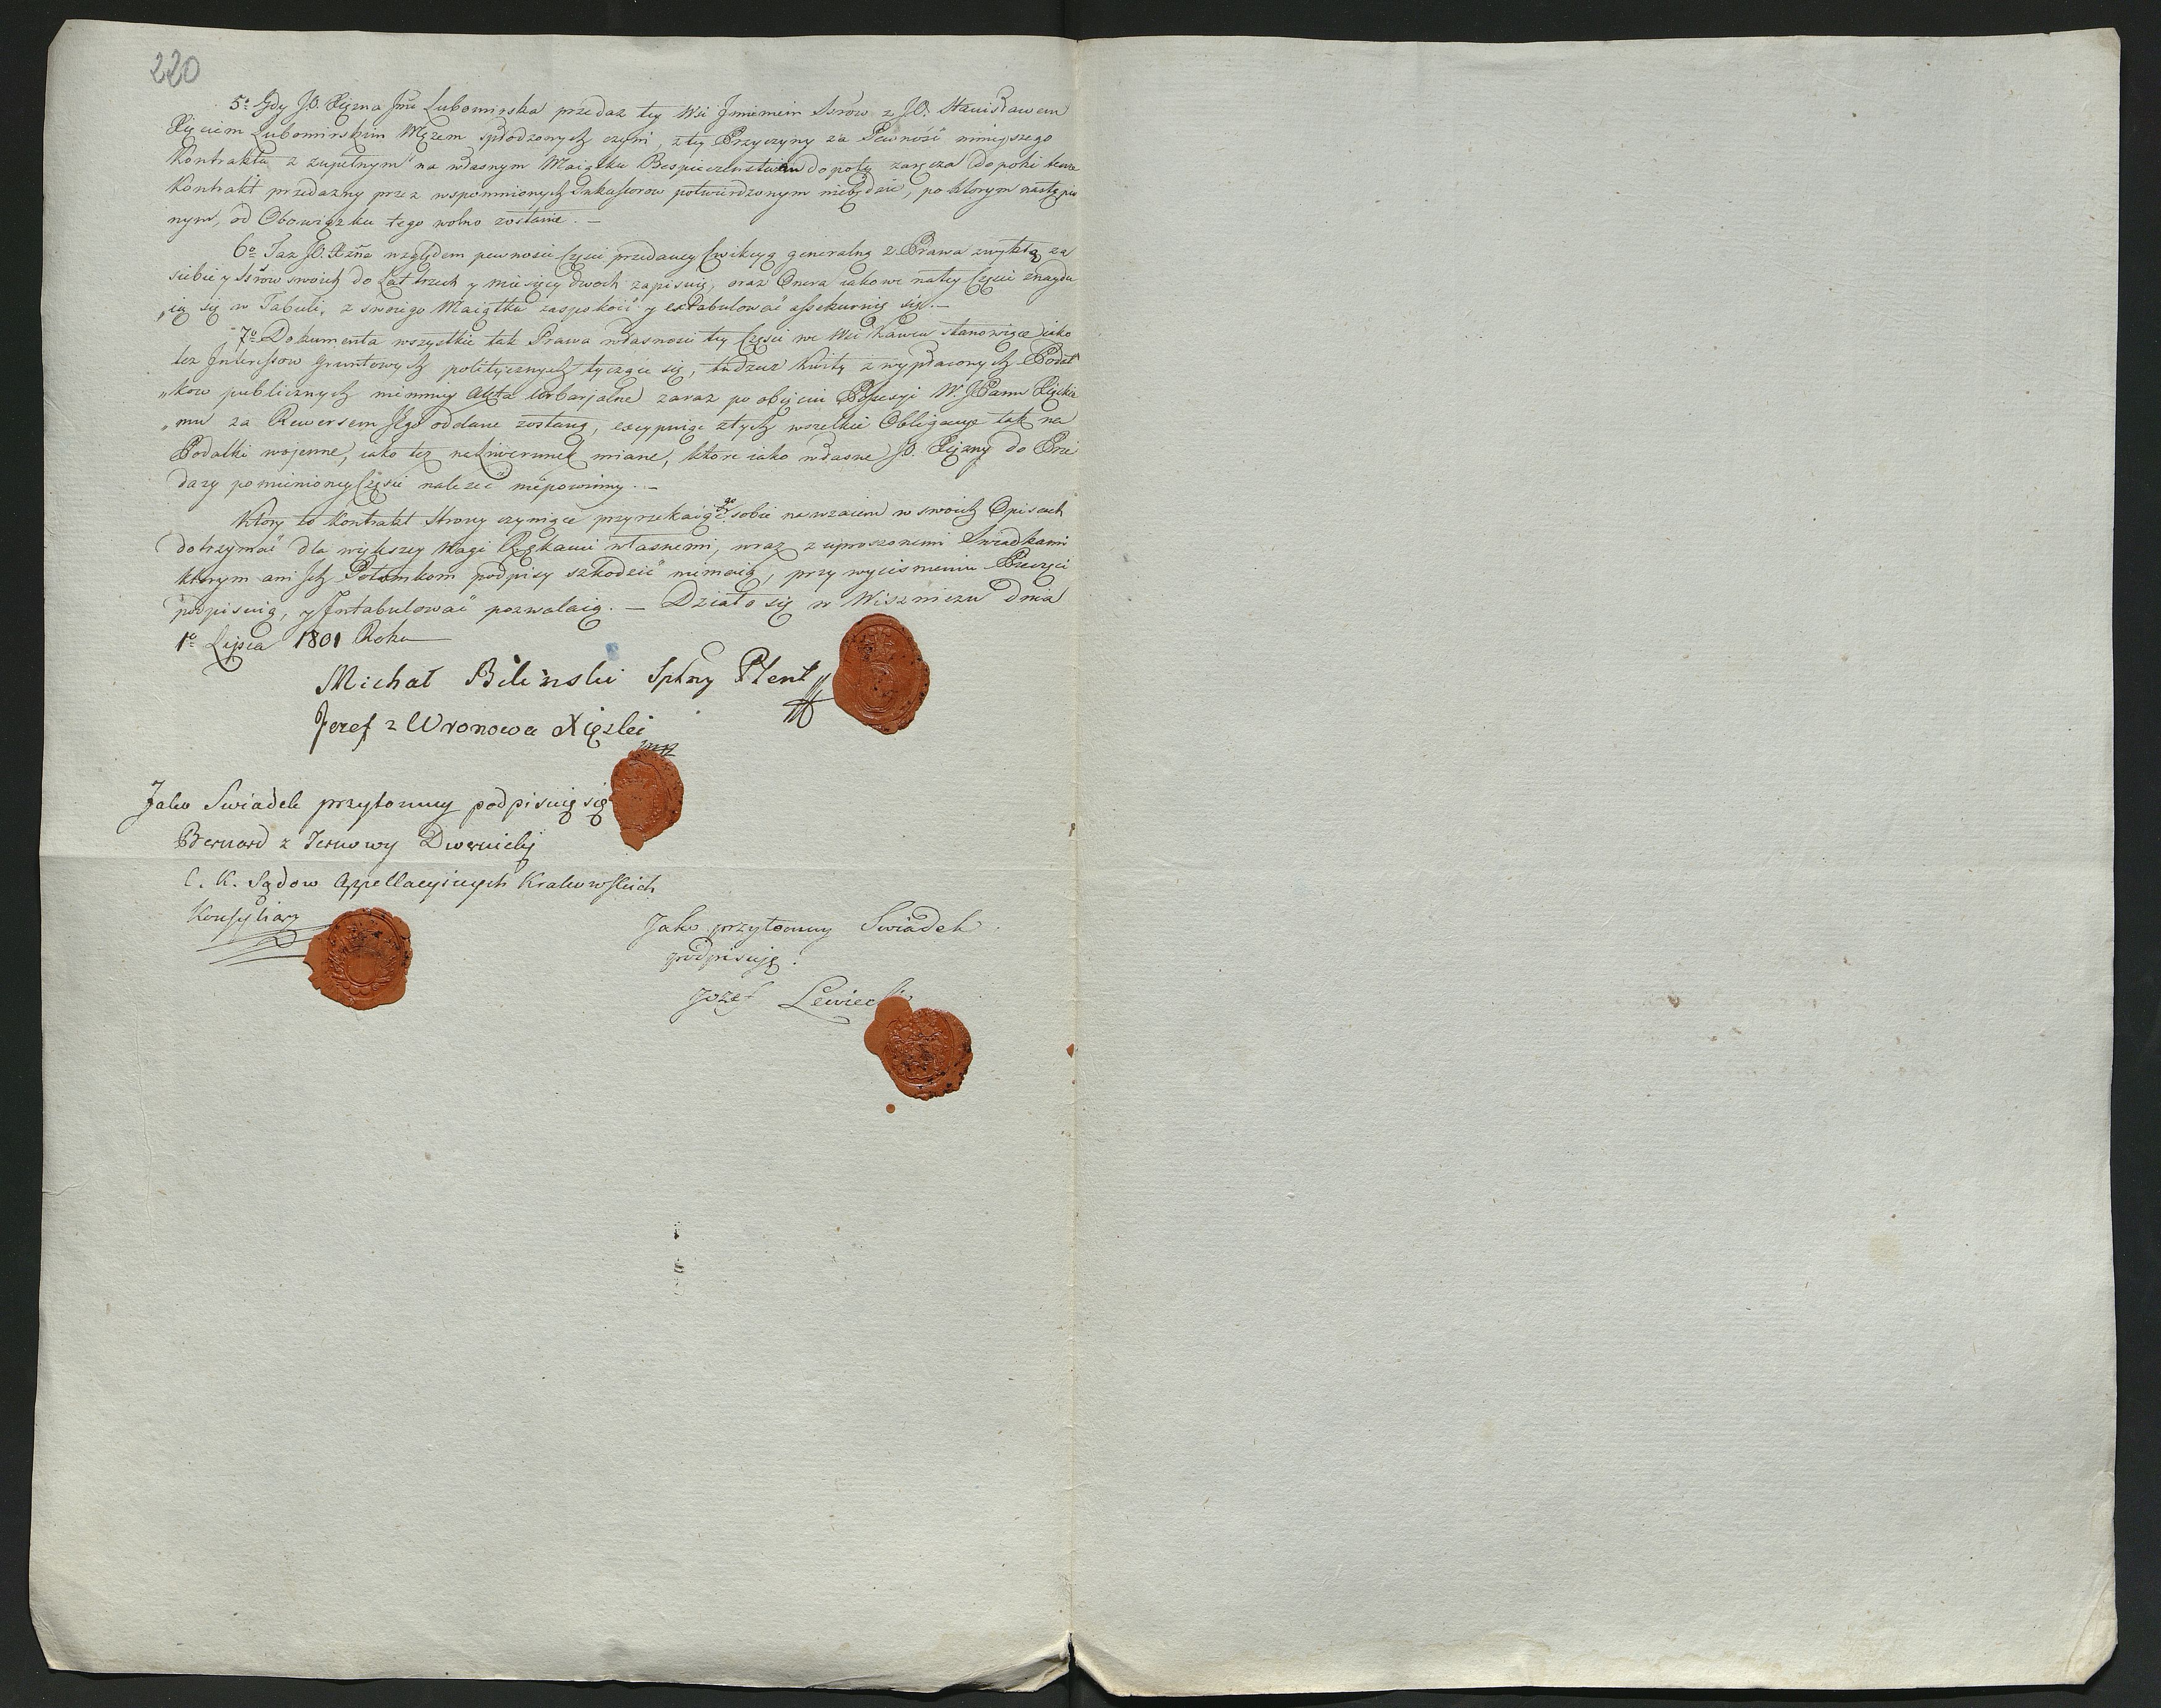 220
5o Gdy J.O. Xięzna Jmć Lubomirska przedaż tey Wsi Jmieniem Ssrow z J.O. Stanisławem
Xięciem Lubomirskim Mężem spłodzonych czyni, z tey Przyczyny za Pewność ninieyszego
Kontraktu z zupełnym na własnym Maiątku Bespieczeństwem dopoty zaręcza dopoki tenże
Kontrakt przedażny przez wspomnionych Sukcessorow potwierdzonym niebędzie, po ktorym nastąpio
nym, od Obowiązku tego wolno zostanie. —
6o Taż J.O. Xżna względem pewności Części przedaney Ewikcyą generalną z Prawa zwykłą za
siebie y Ssrow swoich do Lat trzech y miesięcy dwoch zapisuie, oraz Onera iakowe na tey Części znaydu
„ią się w Tabuli, z swoiego Maiątku zaspokoić y extabulować assekuruie się. —
7o Dokumenta wszystkie tak Prawa własności tey Części we Wsi Kawcu stanowiące iako
też Interessow gruntowych politycznych tyczące się, tudzież Kwity z wypłaconych Podat
„kow publicznych niemniey Akta Urbarjalne zaraz po obięciu Possesyi W. JPanu Xięskie
„mu za Rewersem Jego oddane zostaną, excypuiąc z tych wszelkie Obligacye tak na
Podatki woienne, iako też na Liwerunek miane, ktore iako własne J.O. Xiężny do Prze
daży pomienioney Części należeć niepowinny. —
Ktory to Kontrakt Strony czyniące przyrzekaiąc go sobie nawzaiem w swoich Opisach
dotrzymać dla większey Wagi Rękami własnemi, wraz z uproszonemi Swiadkami
ktorym ani Jch Potomkom podpisy szkodzić niemaią, przy wyciśnieniu Pieczęci
podpisuią, y Intabulować pozwalaią. — Działo się w Wiszniczu dnia
1o Lipca 1801 Roku
Michał Biliński Splny Plent
Jozef z Wronowa Xięzki
mp
Jako Swiadek przytomny podpisuię się
Bernard z Ternowy Dwernicki
C. K. Sądow Appellacyinych Krakowskich
Konsyliarz
Jako przytomny Swiadek
podpisuję.
Jozef Lewiecki